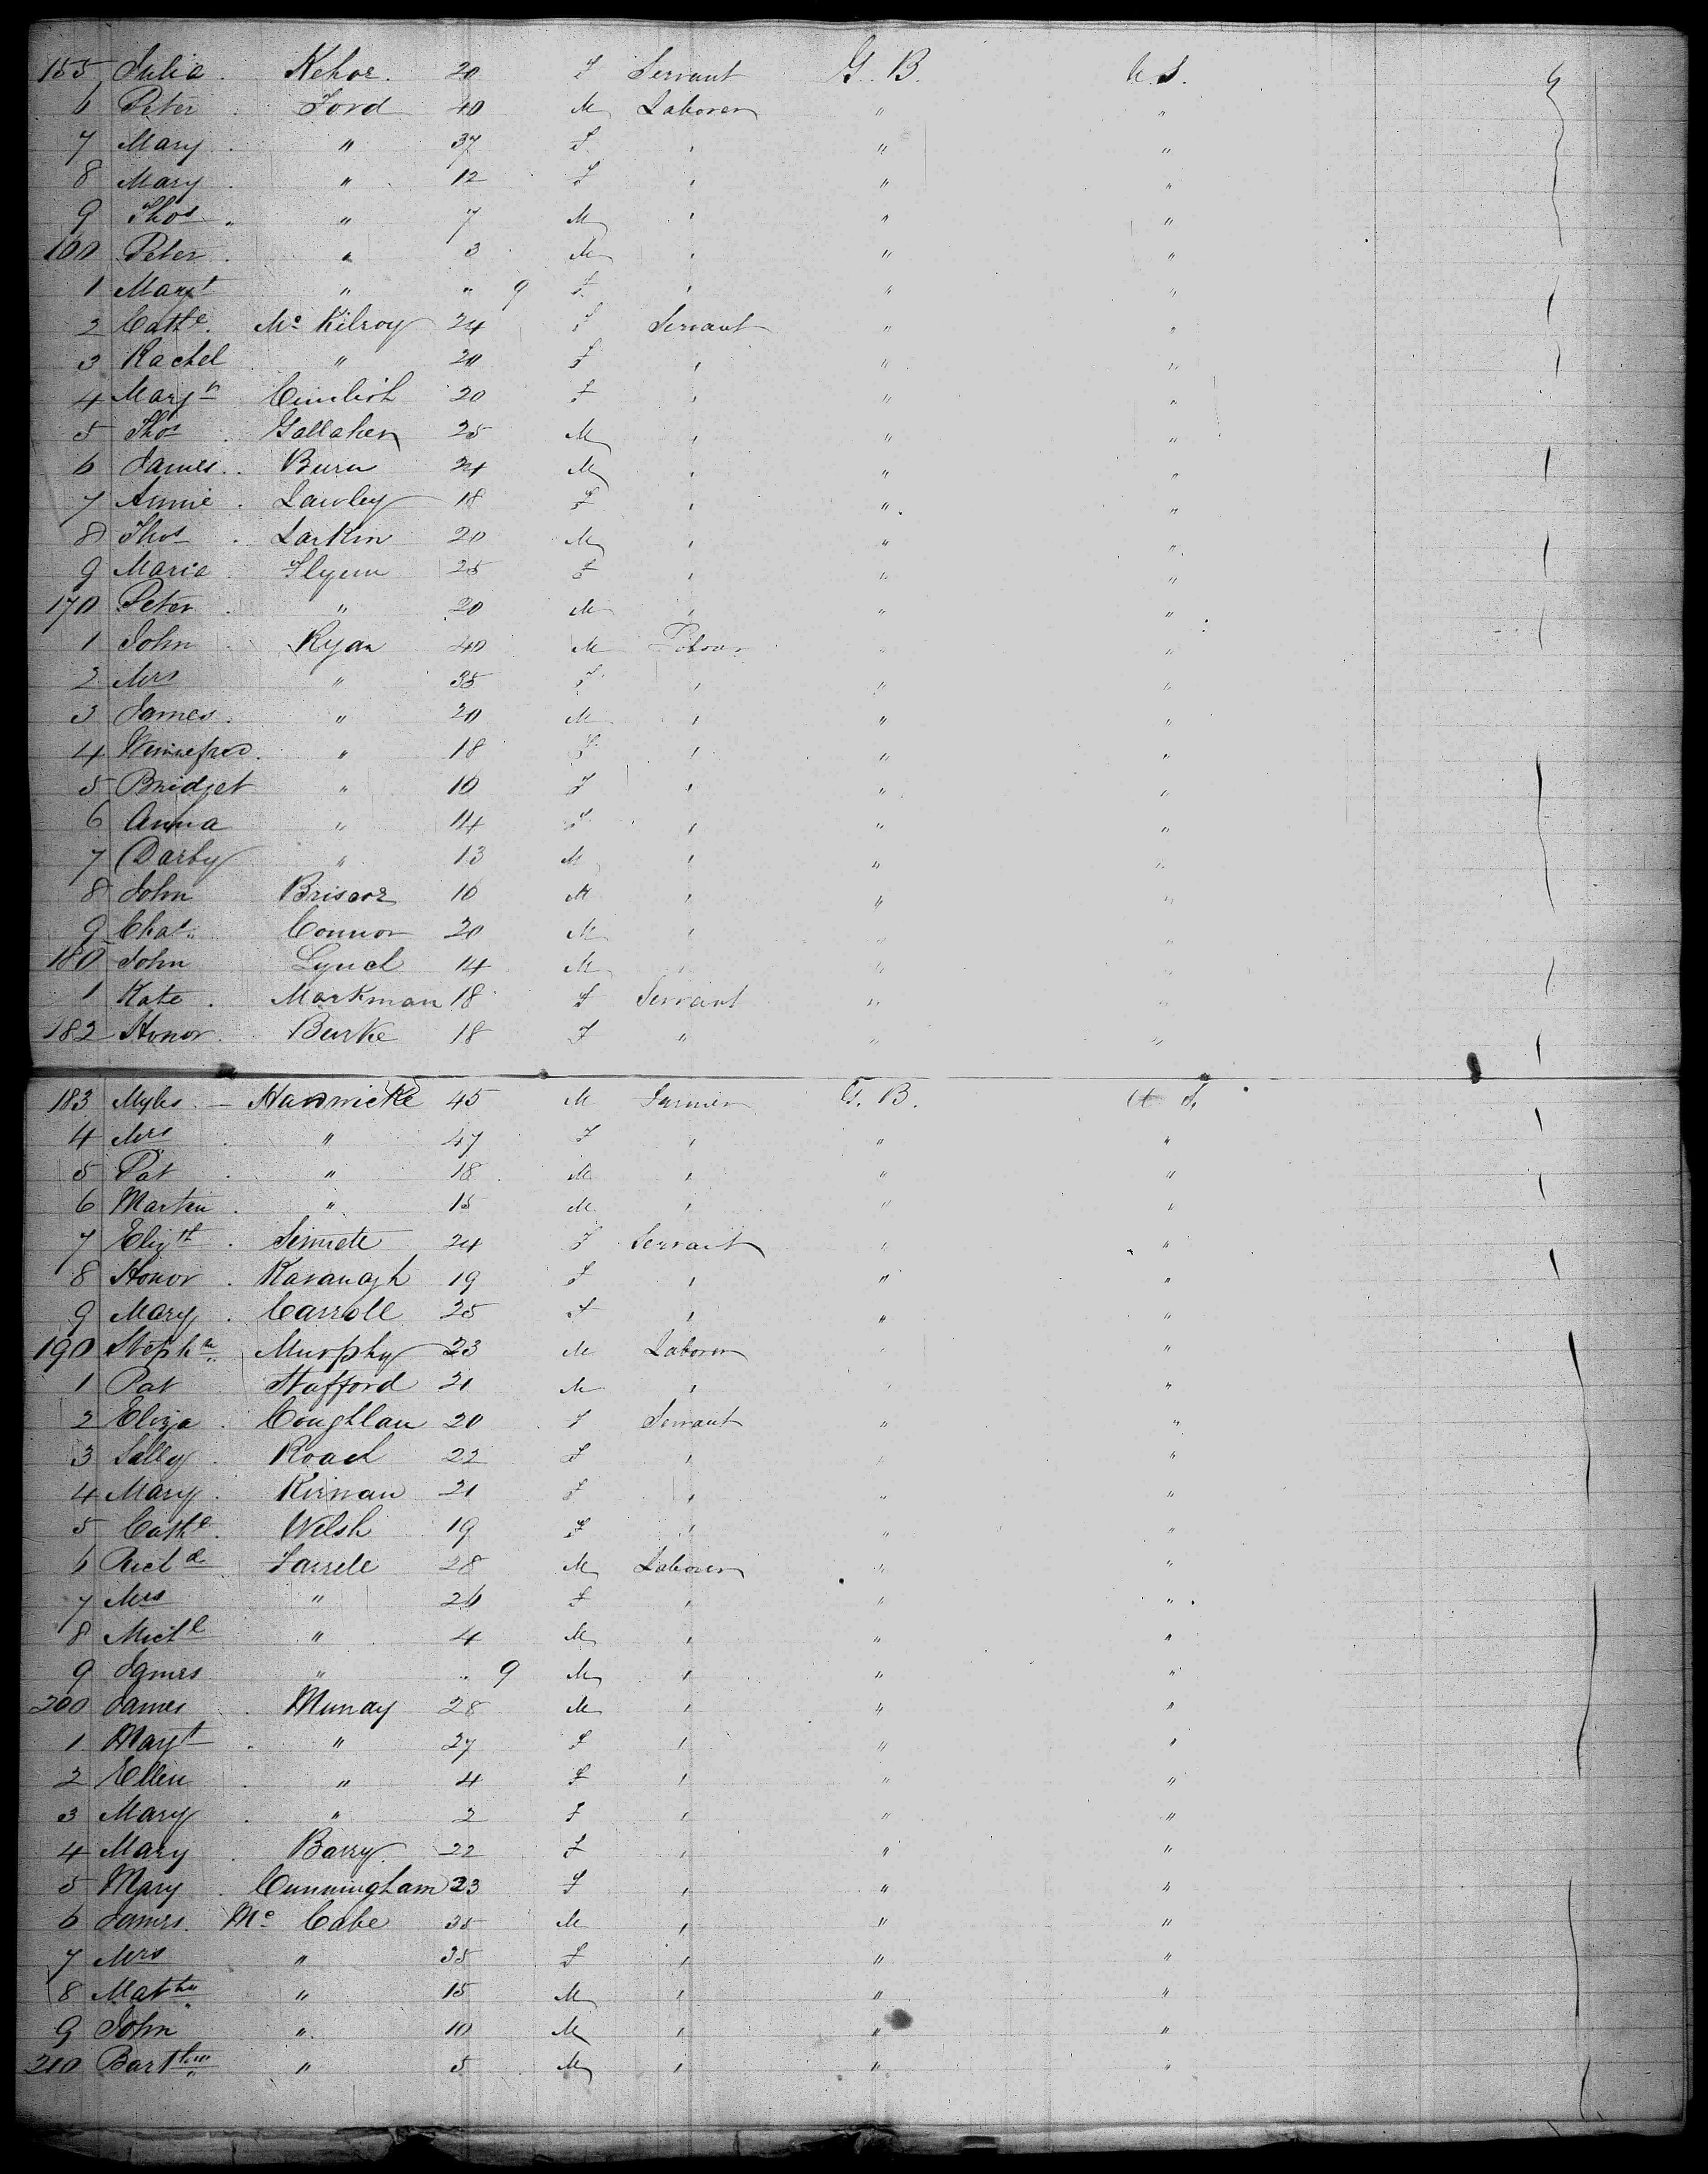 155 Julia . Kehoe . 20 F Servant G. B. U. S.
6 Peter . Ford 40 M Laborer " "
7 Mary . " 37 F " " "
8 Mary . " 12 F " " "
9 Thos . " 7 M " " "
160 Peter . " 3 M " " "
1 Margt " " 9 F " " "
2 Cathe . Mc Kilroy 24 F Servant " "
3 Rachel " 20 F " " "
4 20 F " " "
5 Thos . Gallaher 25 M " " "
6 James . Burn 24 M " " "
7 Annie . Lawley 18 F " " "
8 Thos . Larkin 20 M " " "
9 Maria . Flynn 25 F " " "
170 Peter . " 20 M " " "
1 John . Ryan 40 M Labour " "
2 Mrs " 35 F " " "
3 James . " 20 M " " "
4 Winnefred . " 18 F " " "
5 Bridget " 16 F " " "
6 Anna " 14 F " " "
7 Darby " 13 M " " "
8 John Briscoe 16 M " " "
9 Chas . Connor 20 M " " "
180 John Lynch 14 M " " "
1 Kate . Markman 18 F Servant " "
182 Honor . Burke 18 F " " "
183 Myles . Harnwicke 45 M Farmer G. B. U. S.
4 Mrs . " 47 F " " "
5 Pat . " 18 M " " "
6 Martin . " 15 M " " "
7 Elizth . Sinnete 24 F Servant " "
8 Honor . Kavanagh 19 F " " "
9 Mary . Carroll 25 F " " "
190 Stephn Murphy 23 M Laborer " "
1 Pat Stafford 21 M " " "
2 Eliza . Coughlan 20 F Servant " "
3 Sally . Roach 22 F " " "
4 Mary . Kirwan 21 F " " "
5 Cathe . Welsh 19 F " " "
6 Richd Farrele 28 M Laborer " "
7 Mrs " 26 F " " "
8 Michl " 4 M " " "
9 James " " 9 M " " "
200 James . Murray 28 M " " "
1 Margt . " 27 F " " "
2 Ellen . " 4 F " " "
3 Mary . " 2 F " " "
4 Mary . Barry . 22 F " " "
5 Mary . Cunningham 23 F " " "
6 James . Mc Cabe 35 M " " "
7 Mrs " 35 F " " "
8 Matthw " 15 M " " "
9 John " 10 M " " "
210 Bartlmw " 5 M " " "